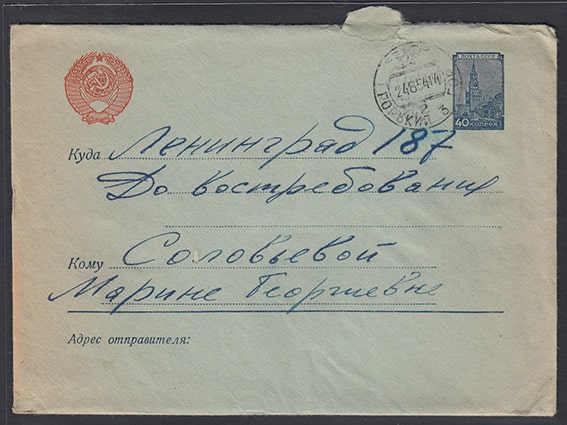 ПОЧТА СССР
40 КОПЕЕК
2485414
Куда Ленинград 187
До востребования
Кому Соловьевой
Марине Георгиевне
Адрес отправителя: